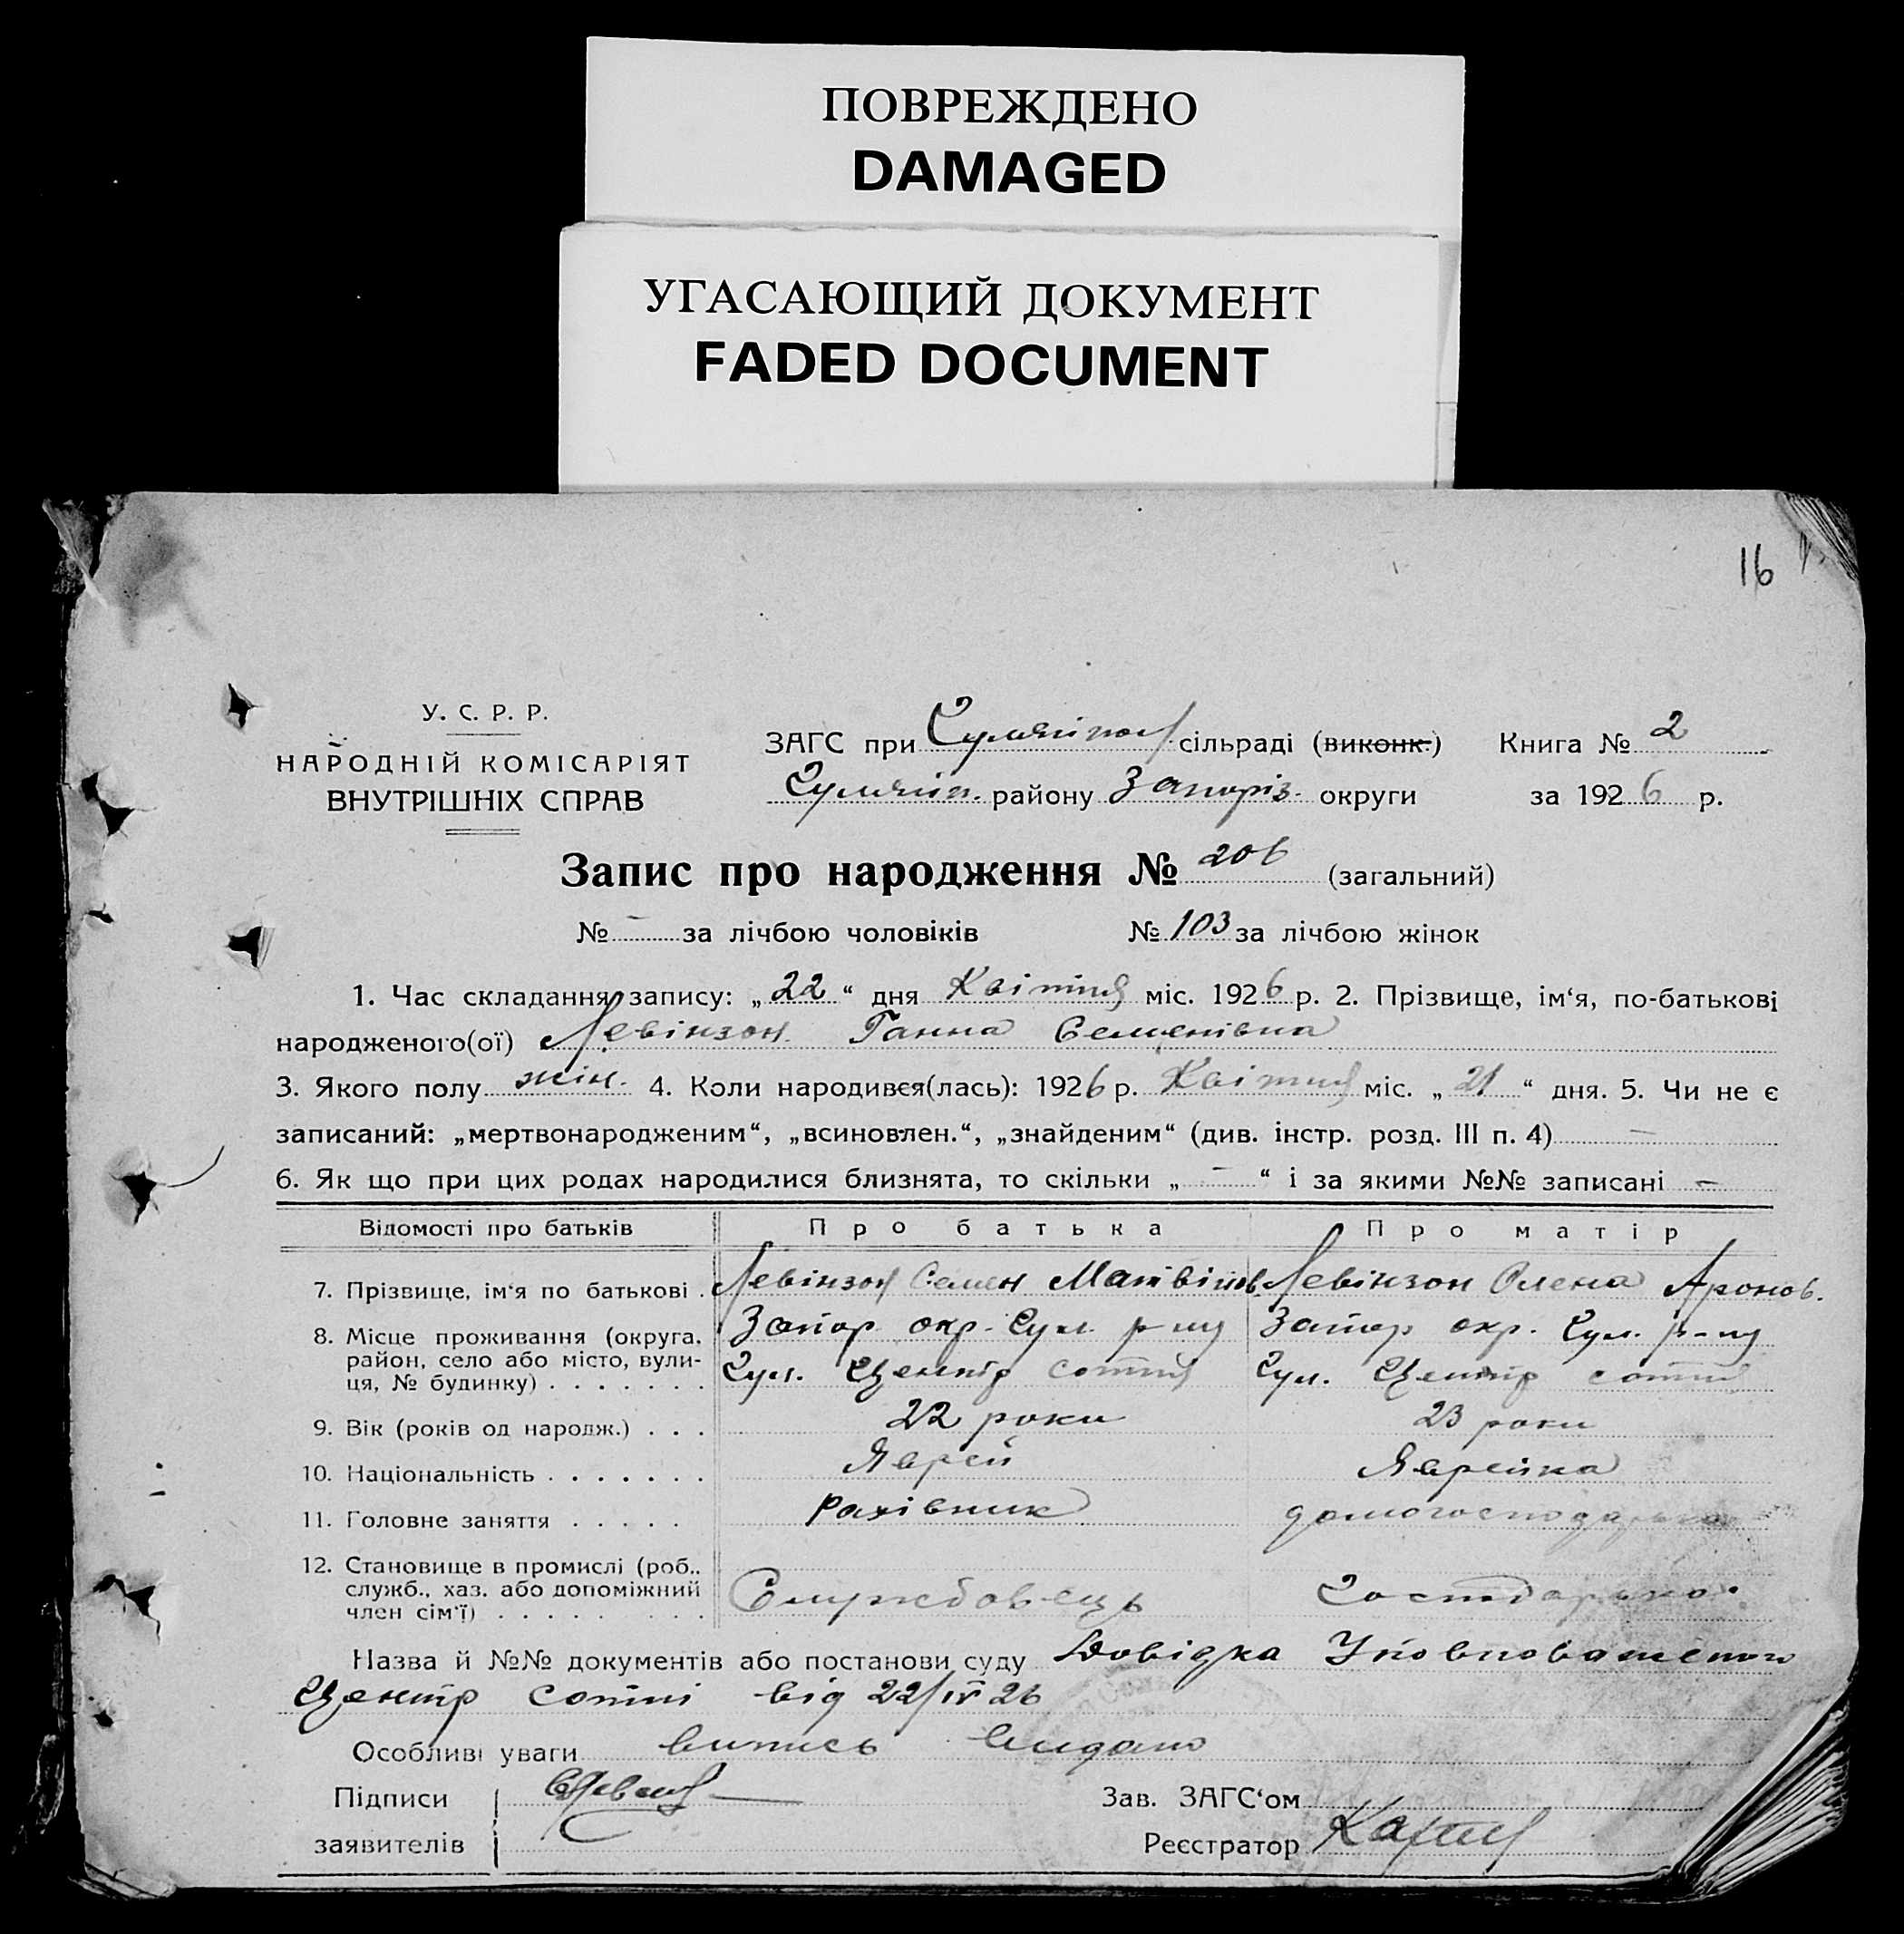 ПОВРЕЖДЕНО
DAMAGED
УГАСАЮЩИЙ ДОКУМЕНТ
FADED DOCUMENT
16
У. С. Р. Р.
НАРОДНІЙ КОМІСАРІЯТ
ВНУТРІШНІХ СПРАВ
ЗАГС при Гуляйпол сільраді (виконк.) Книга № 2
Гуляйп. району Запоріз. округи за 1926 р.
Запис про народження № 206 (загальний)
№ - за лічбою чоловіків № 103 за лічбою жінок
1. Час складання запису: „22“ дня Квітня міс. 1926 р. 2. Прізвище, ім‘я, по-батькові
народженого(ої) Левінзон Ганна Семенівна
3. Якого полу жін. 4. Коли народився(лась): 1926 р. Квітня міс. „21“ дня. 5. Чи не є
записаний: „мертвонародженим“, „всиновлен.“, „знайденим“ (див. інстр. розд. III п. 4) —
6. Як що при цих родах народилися близнята, то скільки „ — “ і за якими №№ записані —
Відомості про батьків Про батька Про матір
7. Прізвище, ім‘я по батькові . Левінзон Семен Матвійов. Левінзон Олена Аронов.
8. Місце проживання (округа, район, село або місто, вули-ця, № будинку) . . . . . . . Запор. окр. Гул. р-ну Запор. окр. Гул. р-ну
Гул. Центр сотня Гул. Центр сотня
9. Вік (років од народж.) . . . 22 роки 23 роки
10. Національність . . . . . . . Яврей Яврейка
11. Головне заняття . . . . . Рахівник домогосподарька
12. Становище в промислі (роб., служб., хаз. або допоміжний член сім‘ї) . . . . . . . . Службовець Господарька.
Назва й №№ документів або постанови суду Довідка Уповноваженого
Центр сотні від 22/IV 26
Особливі уваги випись видано
Підписи Зав. ЗАГС‘ом
заявителів Реєстратор